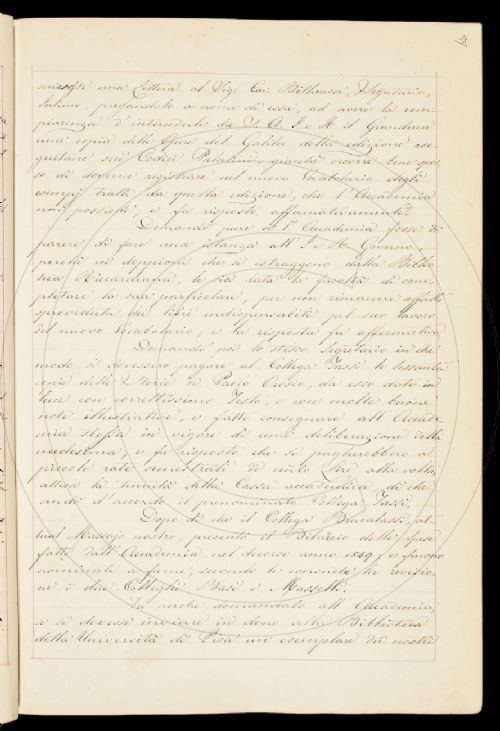 scrivesse una Lettera al Sig.r Cav. Bithiusi, Segretario
Intimo, pregandolo a nome di essa, ad avere la com-
piacenza d'intercedere da S. A. I. e R. il Granduca
una copia delle Opere del Galileo della edizione ese-
guita sui Codici Palatini, giacché occorre bene spes-
so di doverne registrare nel nuovo Vocabolario degli
esempi tratti da questa edizione, che l'Accademia
non possiede; e fu risposto affermativamente.
Domandò pure se l'Accademia fosse di
parere di fare una istanza all'I. e R. Governo,
perché dei doppioni che si estraggono dalla Biblio-
teca Riccardiana, le sia data la facoltà di com-
pletare la sua particolare, per non rimanere affatto
sprovveduta di libri indispensabili pel suo lavoro
del nuovo Vocabolario; e la risposta fu affermativa.
Domandò poi lo stesso Segretario in che
modo si dovessero pagare al Collega Tassi le sessanta
copie delle Storie di Paolo Orosio, da esso date in
luce con correttissimo Testo, e con molte buone
note illustrative, e fatte consegnare all'Accade-
mia stessa in vigore di una deliberazione della
medesima; e fu risposto che si pagherebbero a
piccole rate semestrali di cento Lire alla volta,
attesa la tenuità della Cassa accademica, di che
andò d'accordo il prenominato Collega Tassi.
Dopo di che il Collega Bencalassi, at-
tual Massajo nostro, presentò il Bilancio delle spese
fatte dall'Accademia nel decorso anno 1849; e furono
nominati a farne, secondo le consuete, la revisio-
ne i due Colleghi Basi e Masselli.
Fu anche domandato all'Accademia,
se si dovesse inviare in dono alla Biblioteca
della Università di Pisa un esemplare dei nostri